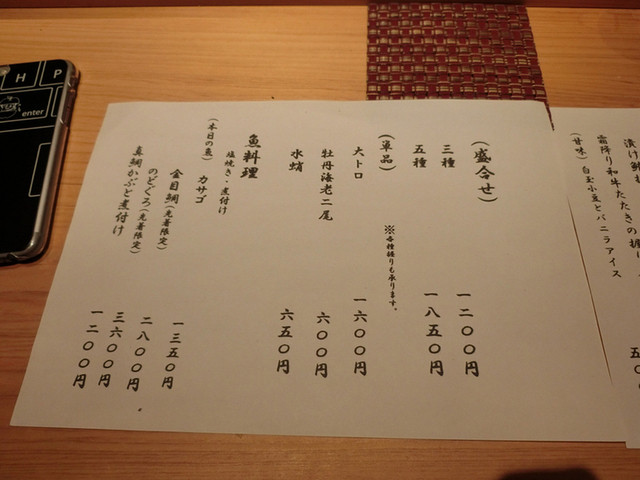 漬け鮪
霜降り和牛たたきの握
(甘味) 白玉小豆とバニラアイス
五〇
(盛合せ)
三種 一二〇〇円
五種 一八五〇円
(単品) ※各種握りも承ります。
大トロ 一六〇〇円
牡丹海老二尾 六〇〇円
水蛸 六五〇円
魚料理
塩焼き・煮付け
(本日の魚) カサゴ 一三五〇円
金目鯛(先着限定) 二八〇〇円
のどぐろ(先着限定) 三六〇〇円
真鯛かぶと煮付け 一二〇〇円
H P
enter